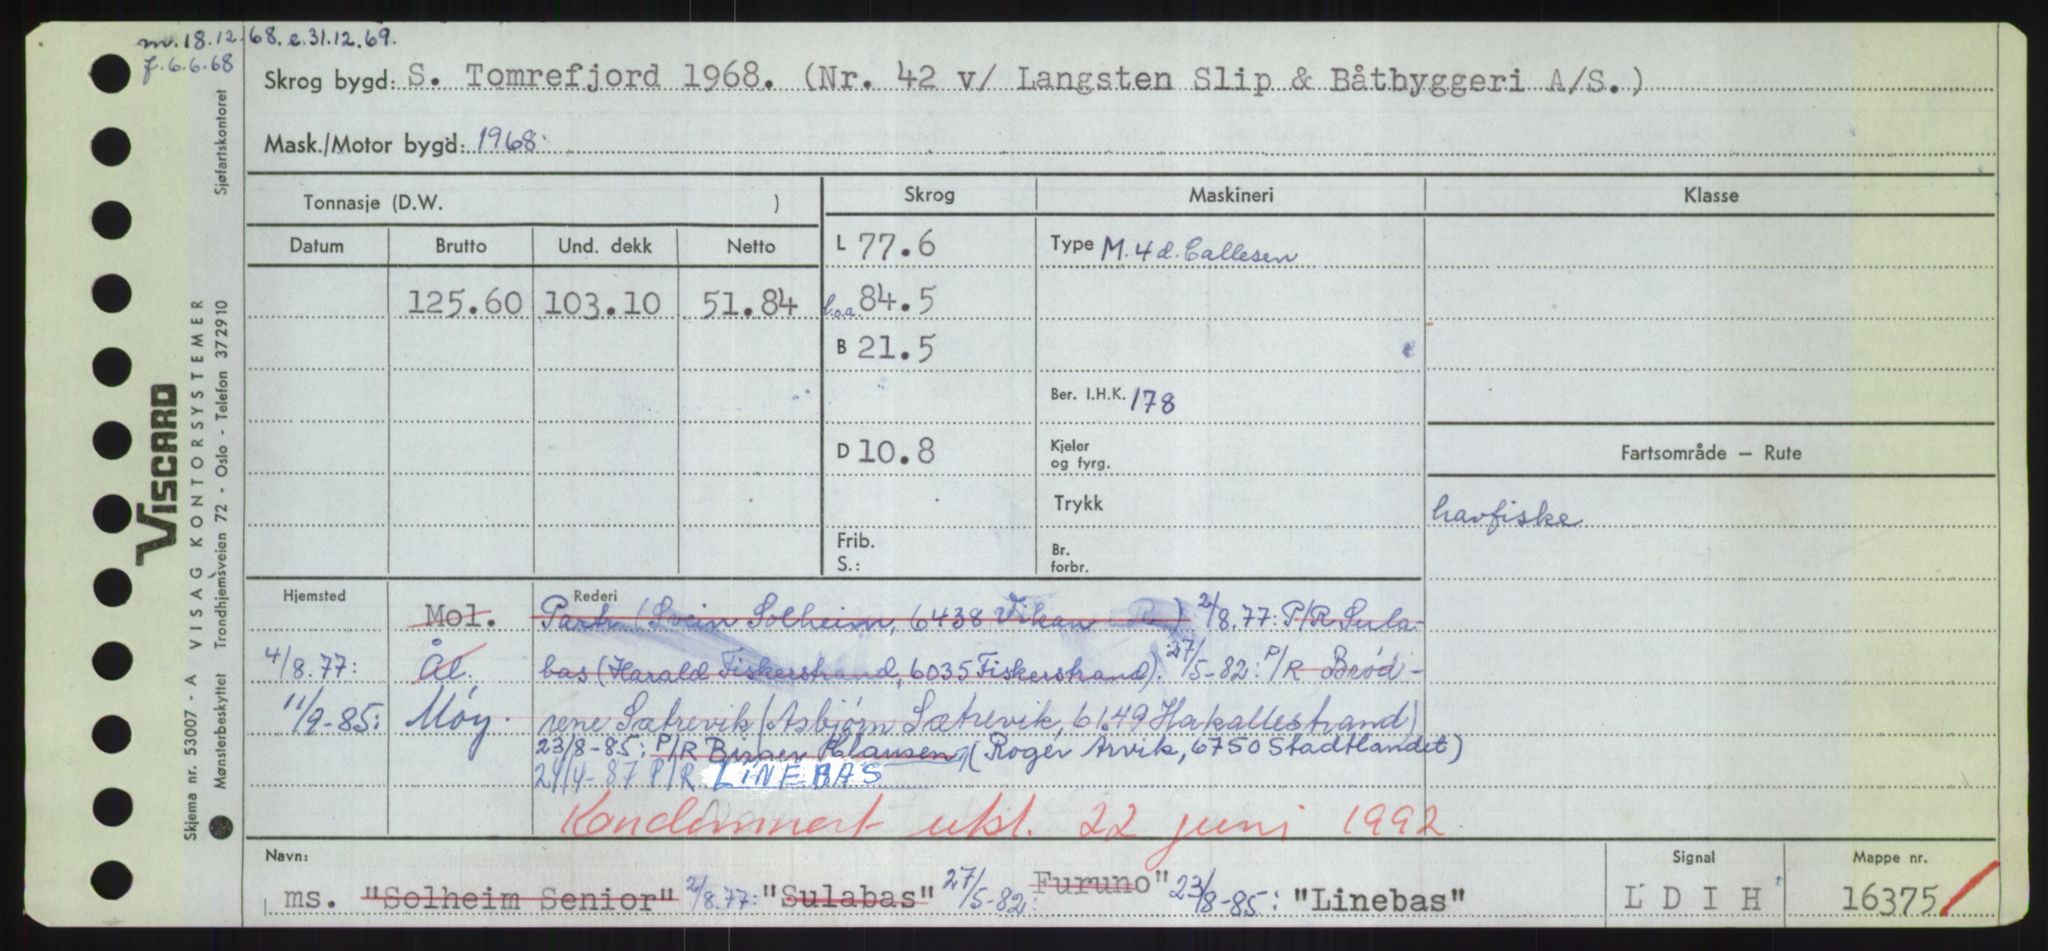 m. 18.12.68. e. 31.12.69.
f. 6.6.68
Skrog bygd: S. Tomrefjord 1968. (Nr. 42 v/ Langsten Slip & Båtbyggeri A/S.)
Mask./Motor bygd: 1968.
Tonnasje (D.W. )
Skrog
Maskineri
Klasse
Datum Brutto Und. dekk Netto
L 77.6
Type M. 4 d. Callesen
125.60 103.10 51.84
l.o.a. 84.5
B 21.5
Ber. I.H.K. 178
D 10.8
Kjeler
og fyrg.
Fartsområde — Rute
Trykk
havfiske
Frib.
S.:
Br.
forbr.
Hjemsted
Rederi
Mol. Partr. (Svein Solheim, 6438 Vikan ) 2/8.77: P/R Sula-
4/8.77: Ål. bas (Harald Fiskerstrand, 6035 Fiskerstrand). 27/5-82: P/R Brød-
11/9-85: Møy. rene Sætrevik (Asbjørn Sætrevik, 6149 Hakallestrand)
23/8-85: P/R Birger Hansen, (Roger Arvik, 6750 Stadtlandet)
24/4-87 P/R LINEBAS
Kondemnert utsl. 22 juni 1992
Navn:
Signal
Mappe nr.
ms. "Solheim Senior" 2/8.77: "Sulabas" 27/5-82: Furuno" 23/8-85: "Linebas"
L D I H
16375
VISCARD
Skjema nr. 53007 - A VISAG KONTORSYSTEMER
Mønsterbeskyttet Trondhjemsveien 72 - Oslo - Telefon 372910 Sjøfartskontoret